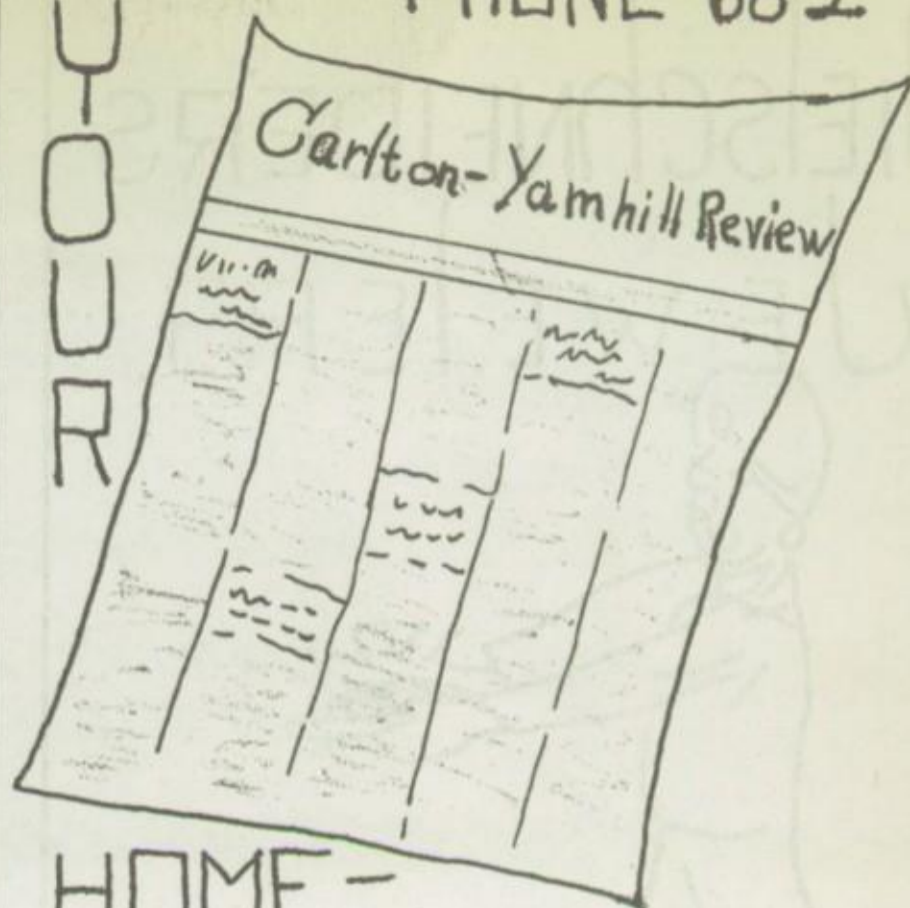 PHONE
YOUR
Carlton-Yamhill Review
HOME-